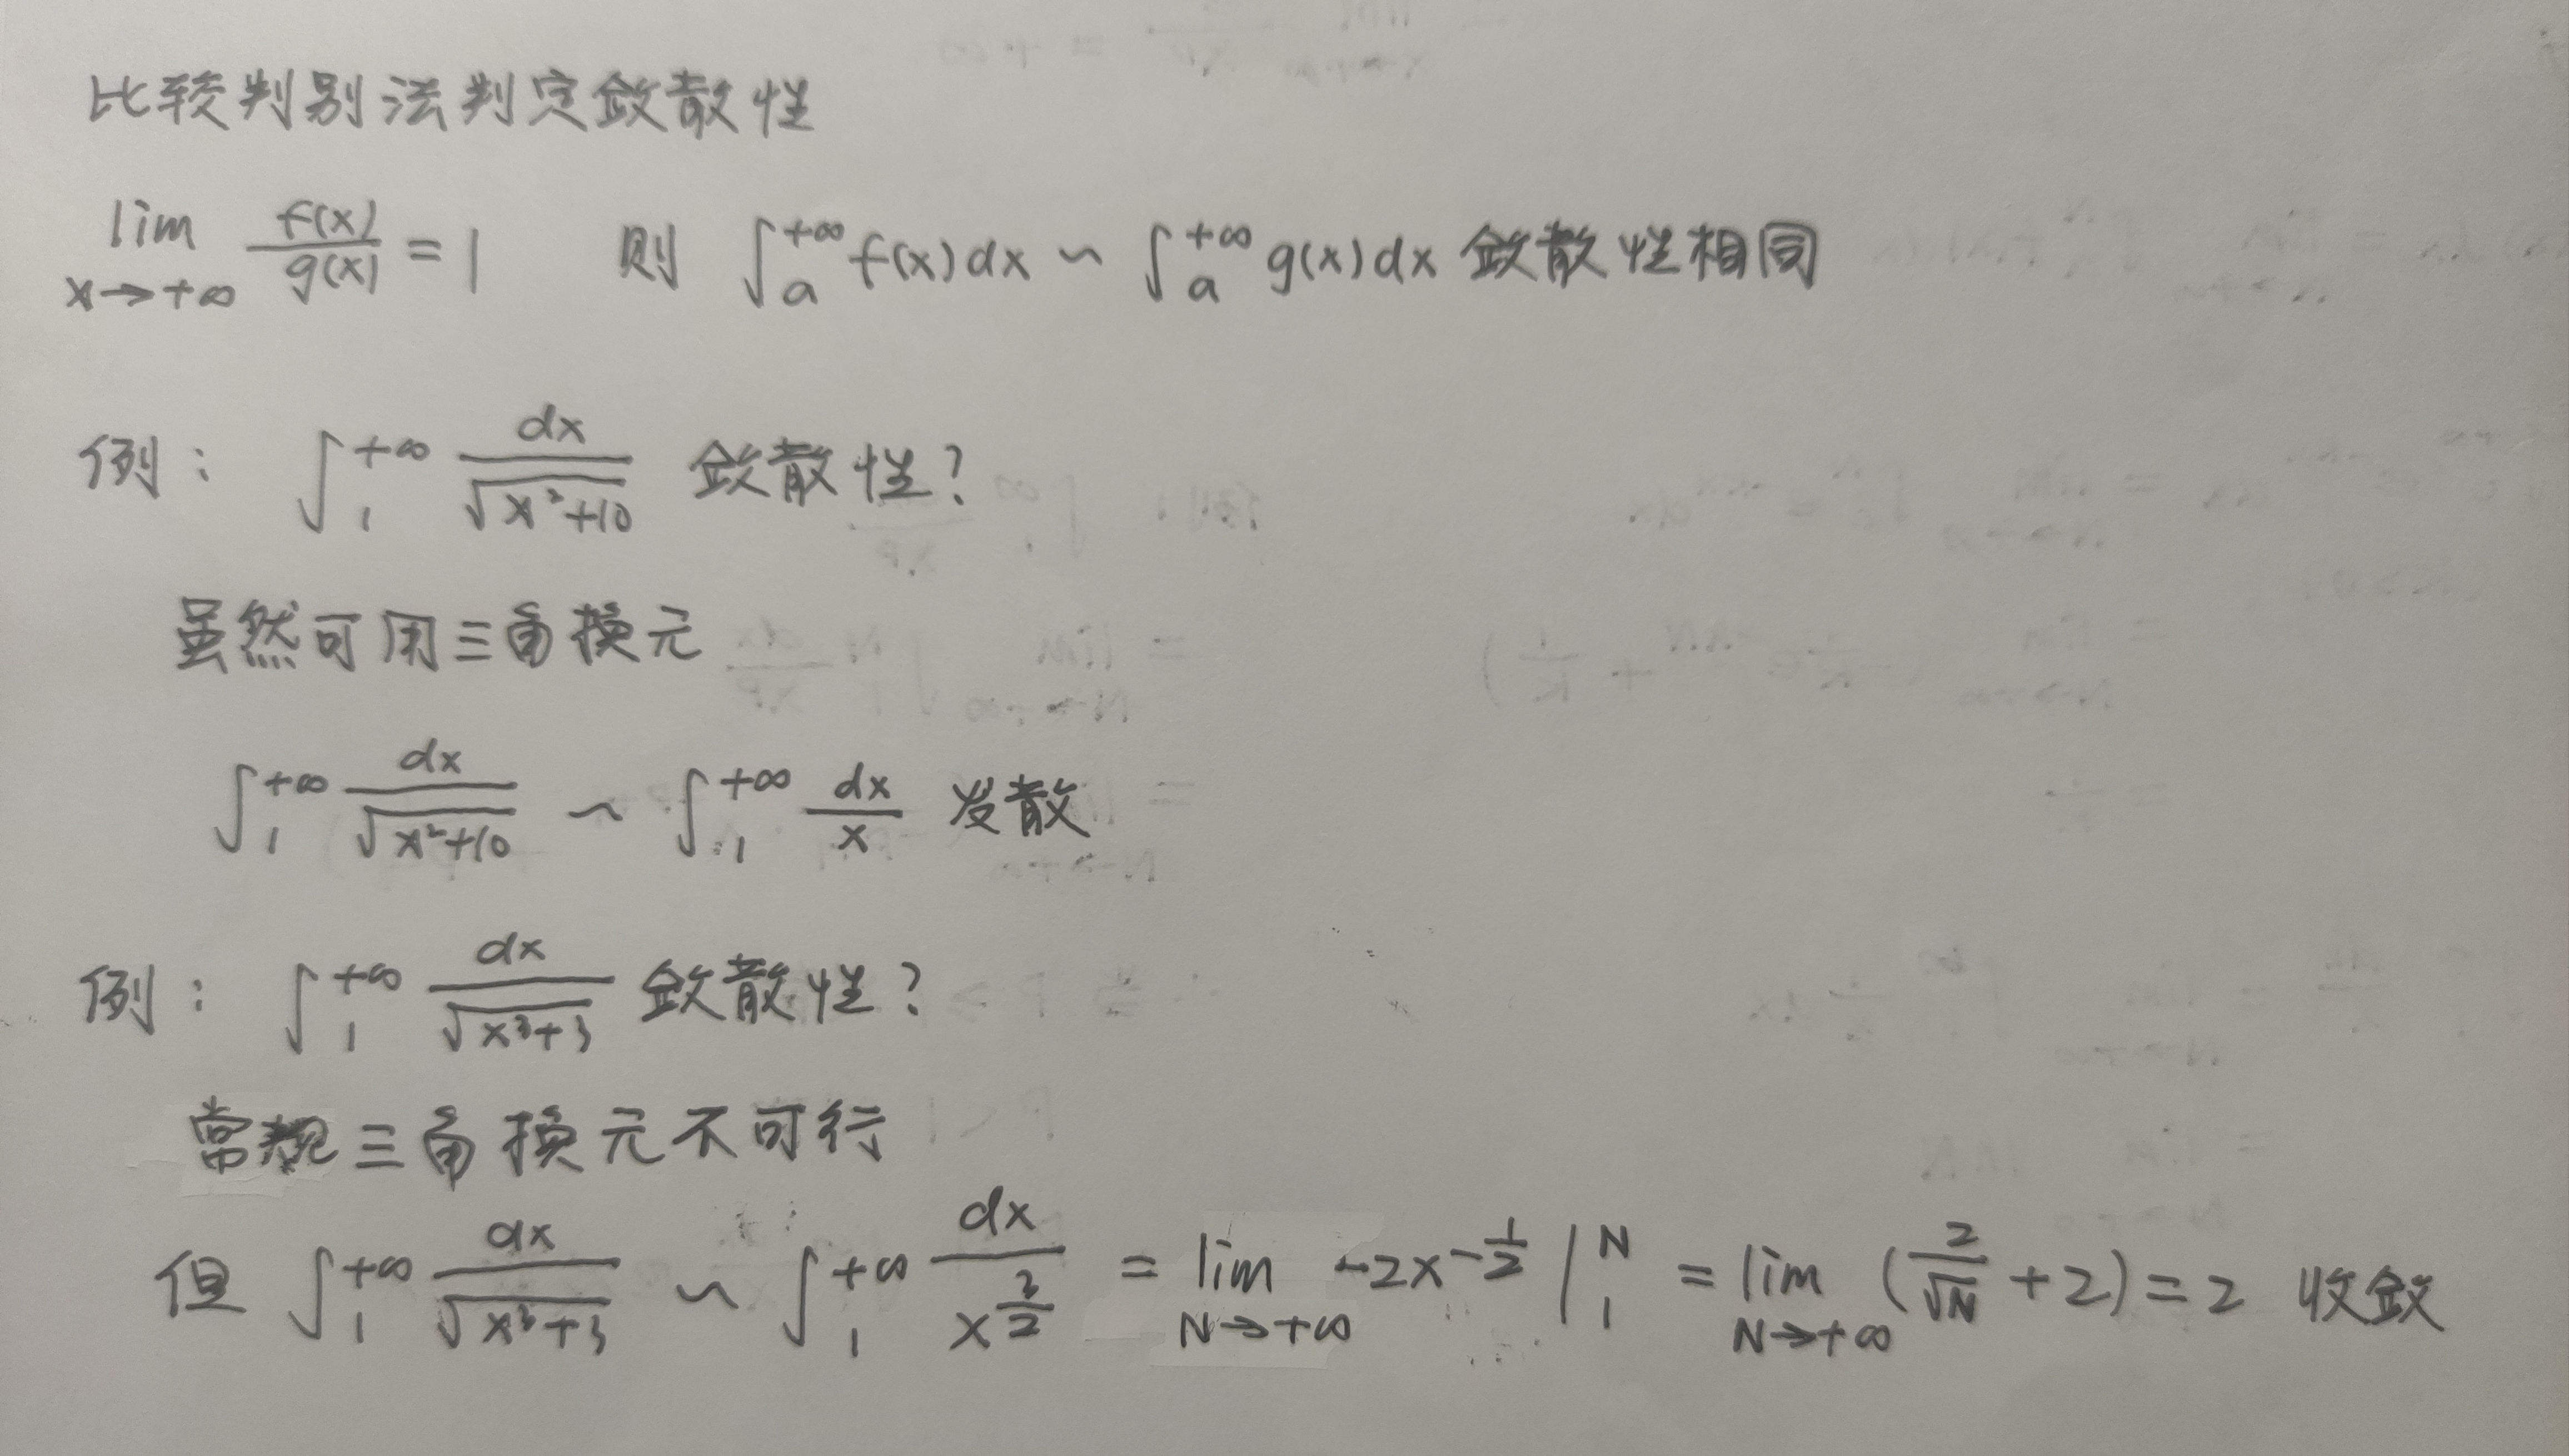 比较判别法判定敛散性
lim x→+∞ f(x)/g(x) = 1 则 ∫_a^{+∞} f(x)dx ~ ∫_a^{+∞} g(x)dx 敛散性相同
例: ∫_1^{+∞} dx/√(x²+10) 敛散性?
虽然可用三角换元
∫_1^{+∞} dx/√(x²+10) ~ ∫_1^{+∞} dx/x 发散
例: ∫_1^{+∞} dx/√(x³+3) 敛散性?
常规三角换元不可行
但 ∫_1^{+∞} dx/√(x³+3) ~ ∫_1^{+∞} dx/x^{3/2} = lim N→+∞ -2x^{-1/2} |_1^N = lim N→+∞ (2/√N + 2) = 2 收敛